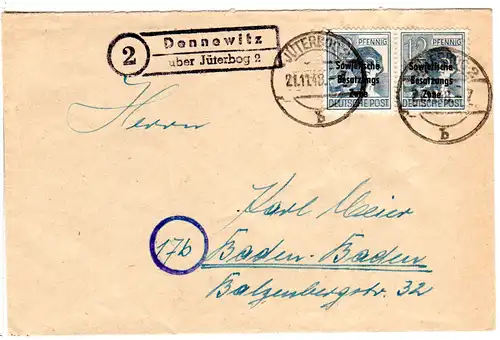 2
Dennewitz
über Jüterbog 2
PFENNIG
12 PFENNIG
Sowjetische
Besatzungs
Zone
DEUTSCHE POST
Sowjetische
Besatzungs
Zone
DEUTSCHE POST
JÜTERBOG
21.11.48
b
b
Herrn
Karl Meier
17b
Baden-Baden
Balzenbergstr. 32